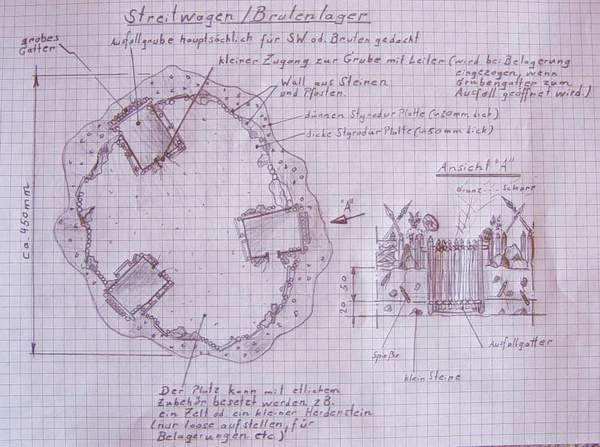 Streitwagen / Brutenlager
grobes
Gatter
Ausfallgrube hauptsächlich für SW od. Bruten gedacht
kleiner Zugang zur Grube mit Leiter (wird bei Belagerung
eingezogen, wenn
Grubengatter zum
Ausfall geöffnet wird.)
Wall aus Steinen
und Pfosten.
dünnen Styrodur Platte (~20mm dick)
dicke Styrodur Platte (~50mm dick)
Ansicht "A"
Schorf
"A"
ca. 450mm
50
20
Spieße
klein Steine
Ausfallgatter
Der Platz kann mit etlichem
Zubehör besetzt werden z.B.
ein Zelt od. ein kleiner Herdenstein
(nur loose aufstellen, für
Belagerungen etc.)